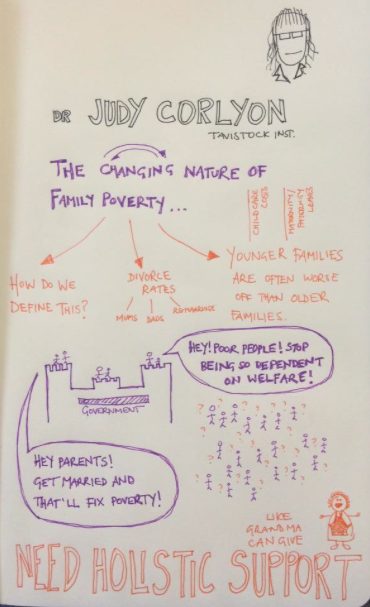 DR JUDY CORLYON
TAVISTOCK INST.
THE CHANGING NATURE OF
FAMILY POVERTY...
CHILDCARE
COSTS
MATERNITY/
PATERNITY
LEAVES
HOW DO WE
DEFINE THIS?
DIVORCE
RATES
MUMS DADS REMARRIAGE
YOUNGER FAMILIES
ARE OFTEN WORSE
OFF THAN OLDER
FAMILIES.
HEY! POOR PEOPLE! STOP
BEING SO DEPENDENT
ON WELFARE!
GOVERNMENT
HEY PARENTS!
GET MARRIED AND
THAT'LL FIX POVERTY!
LIKE
GRANDMA
CAN GIVE
NEED HOLISTIC SUPPORT